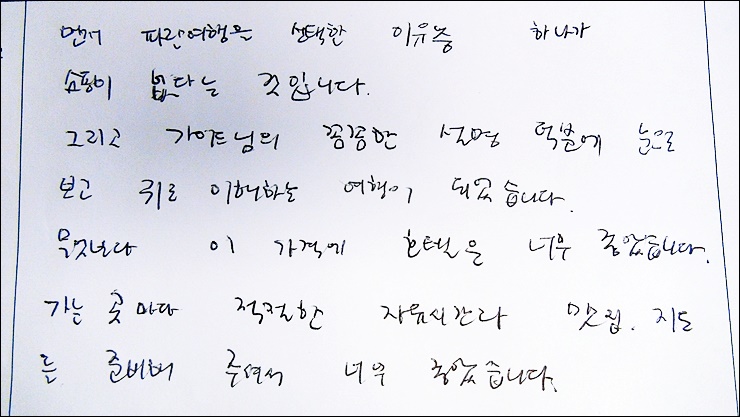 먼저 파란여행을 선택한 이유중 하나가
쇼핑이 없다는 것입니다.
그리고 가이드님의 꼼꼼한 설명 덕분에 눈으로
보고 귀로 이해하는 여행이 되었습니다.
무엇보다 이 가격에 호텔은 너무 좋았습니다.
가는 곳마다 적절한 자유시간과 맛집, 지도
를 준비해 주셔서 너무 좋았습니다.